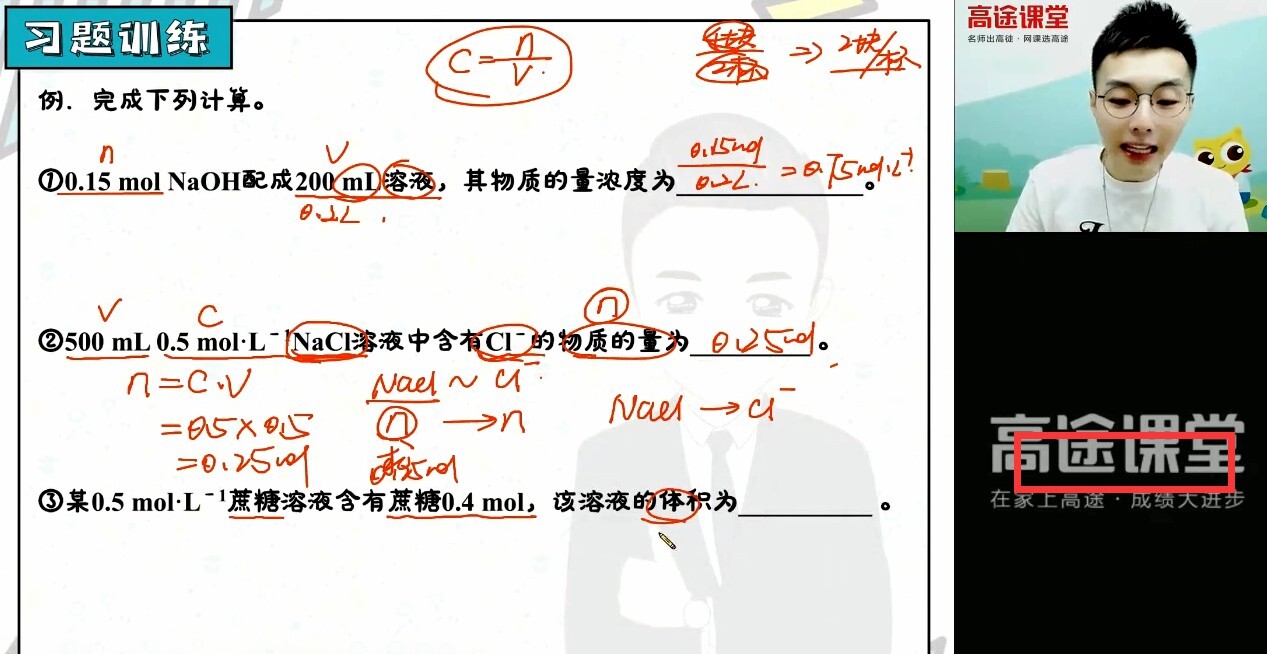 习题训练
C=n/V.
⇒ 2块/杯
高途课堂
名师出高徒·网课选高途
例. 完成下列计算。
n V 0.15mol/0.2L. = 0.75mol·L⁻¹
①0.15 mol NaOH配成200 mL溶液，其物质的量浓度为____________。
0.2L.
V C n
②500 mL 0.5 mol·L⁻¹NaCl溶液中含有Cl⁻的物质的量为 0.25mol 。
n=C.V NaCl ~ Cl⁻.
=0.5×0.5 n → n NaCl → Cl⁻
=0.25mol
③某0.5 mol·L⁻¹蔗糖溶液含有蔗糖0.4 mol，该溶液的体积为__________。
高途课堂
在家上高途·成绩大进步